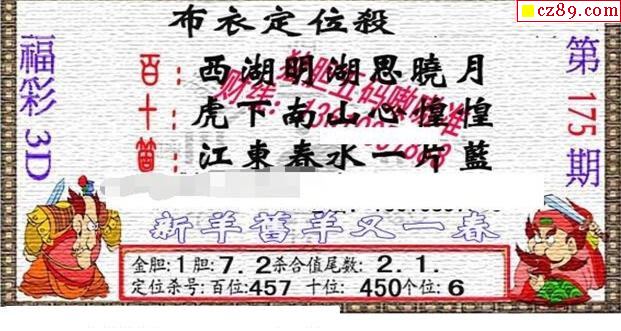 cz89.com
布衣定位殺
福彩3D
第175期
百：西湖明湖思曉月
十：虎下南山心惶惶
個：江東春水一片藍
新羊舊羊又一春
金胆:1胆:7.2杀合值尾数:2.1.
定位杀号:百位:457 十位:450个位:6